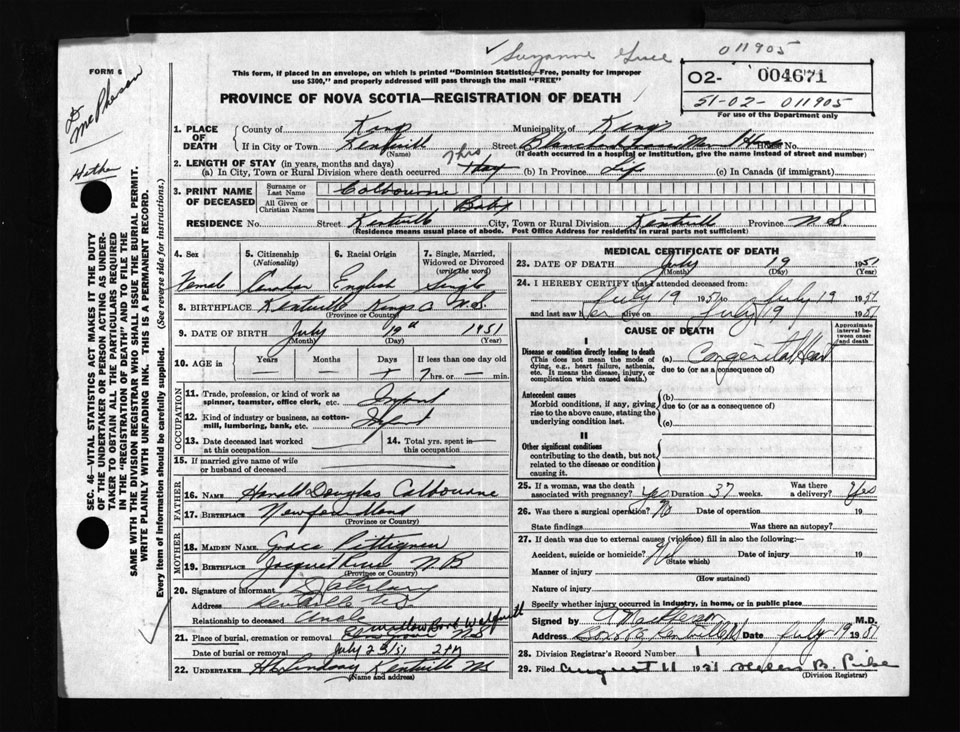 ✓ Suzanne 011905
FORM 6
Dr McPherson
This form, if placed in an envelope, on which is printed "Dominion Statistics—Free, penalty for improper
use $300," and properly addressed will pass through the mail "FREE"
PROVINCE OF NOVA SCOTIA—REGISTRATION OF DEATH
02- 004671
51-02- 011905
For use of the Department only
1. PLACE OF DEATH County of Kings Municipality of Kings
If in City or Town Kentville (Name) Street Blanchard House No.
(If death occurred in a hospital or institution, give the name instead of street and number)
2. LENGTH OF STAY (in years, months and days)
(a) In City, Town or Rural Division where death occurred 7 hrs 1 day (b) In Province Life (c) In Canada (if immigrant)
3. PRINT NAME OF DECEASED Surname or Last Name Colbourne
All Given or Christian Names Baby
RESIDENCE No. Street Kentville City, Town or Rural Division Kentville Province N.S.
(Residence means usual place of abode. Post Office Address for residents in rural parts not sufficient)
SEC. 46—VITAL STATISTICS ACT MAKES IT THE DUTY
OF THE UNDERTAKER OR PERSON ACTING AS UNDER-
TAKER TO OBTAIN ALL THE PARTICULARS REQUIRED
IN THE "REGISTRATION OF DEATH" AND TO FILE THE
SAME WITH THE DIVISION REGISTRAR WHO SHALL ISSUE THE BURIAL PERMIT.
WRITE PLAINLY WITH UNFADING INK. THIS IS A PERMANENT RECORD.
Every item of Information should be carefully supplied. (See reverse side for instructions.)
4. Sex Female
5. Citizenship (Nationality) Canadian
6. Racial Origin English
7. Single, Married, Widowed or Divorced (write the word) Single
8. BIRTHPLACE Kentville Kings Co N.S. (Province or Country)
9. DATE OF BIRTH July (Month) 19th (Day) 1951 (Year)
10. AGE in Years — Months — Days — If less than one day old 7 hrs. or — min.
OCCUPATION
11. Trade, profession, or kind of work as spinner, teamster, office clerk, etc. Infant
12. Kind of industry or business, as cotton-mill, lumbering, bank, etc. Infant
13. Date deceased last worked at this occupation —
14. Total yrs. spent in this occupation —
15. If married give name of wife or husband of deceased
FATHER
16. NAME Harold Douglas Colbourne
17. BIRTHPLACE Newfoundland (Province or Country)
MOTHER
18. MAIDEN NAME Grace
19. BIRTHPLACE Jacquet River N.B. (Province or Country)
20. Signature of informant
Address Kentville N.S.
Relationship to deceased Uncle
21. Place of burial, cremation or removal Elm Grove N.S.
Date of burial or removal July 23/51 2 PM
22. UNDERTAKER H Lindsay Kentville NS (Name and address)
MEDICAL CERTIFICATE OF DEATH
23. DATE OF DEATH July (Month) 19 (Day) 1951 (Year)
24. I HEREBY CERTIFY that I attended deceased from:
July 19 1951 to July 19 1951
and last saw her alive on July 19 1951
CAUSE OF DEATH
Approximate interval between onset and death
I
Disease or condition directly leading to death
(This does not mean the mode of dying, e.g., heart failure, asthenia, etc. It means the disease, injury, or complication which caused death.)
(a) Congenital Heart
due to (or as a consequence of)
Antecedent causes
Morbid conditions, if any, giving rise to the above cause, stating the underlying condition last.
(b)
due to (or as a consequence of)
(c)
II
Other significant conditions
contributing to the death, but not related to the disease or condition causing it.
25. If a woman, was the death associated with pregnancy? Yes Duration 37 weeks. Was there a delivery? Yes
26. Was there a surgical operation? No Date of operation 19
State findings Was there an autopsy?
27. If death was due to external causes (violence) fill in also the following:—
Accident, suicide or homicide? (State which) Date of injury 19
Manner of injury (How sustained)
Nature of injury
Specify whether injury occurred in industry, in home, or in public place
Signed by M.D.
Address Box Kentville NS Date July 19 1951
28. Division Registrar's Record Number 1
29. Filed August 11 1951 Helen B. (Division Registrar)